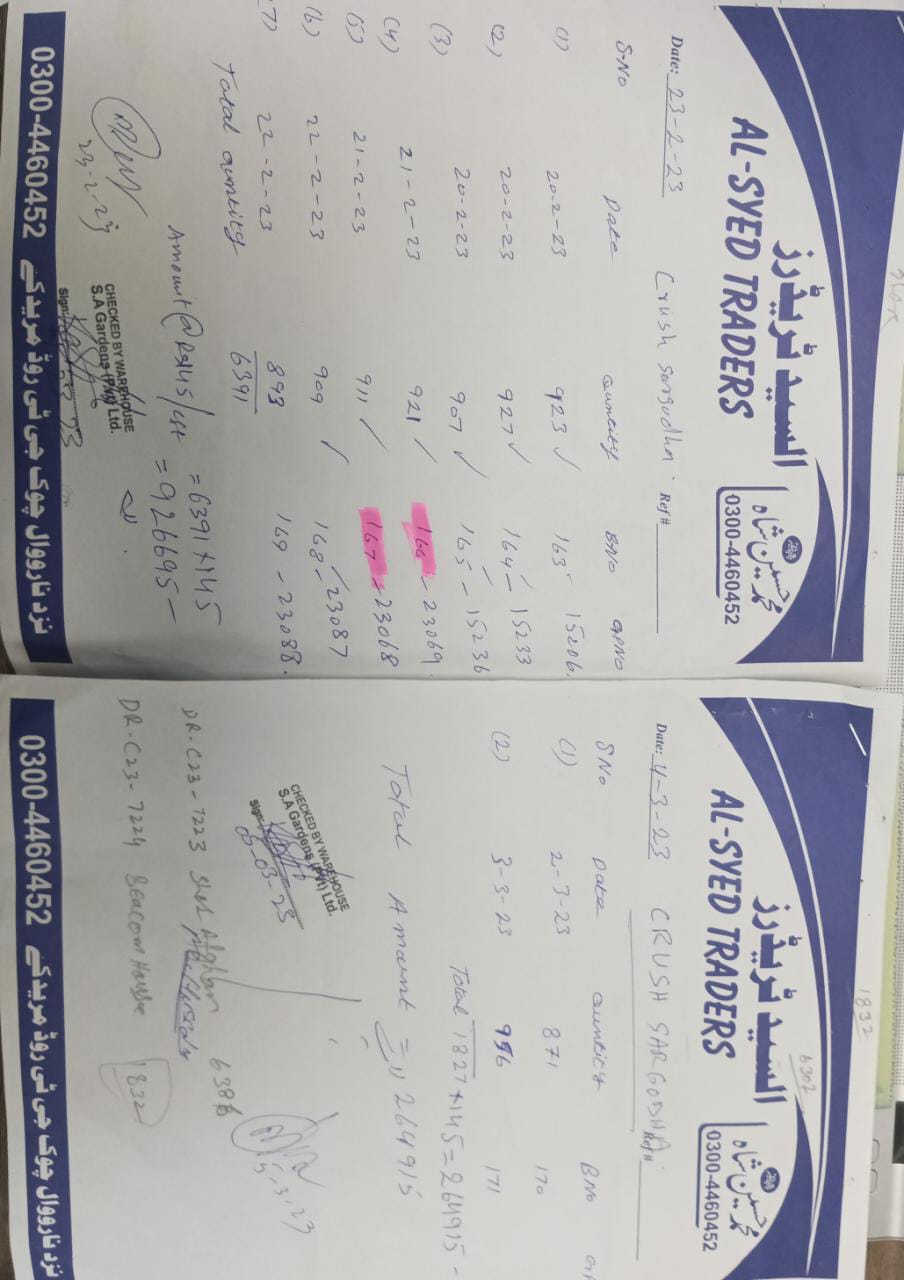 السید ٹریڈرز
AL-SYED TRADERS
0300-4460452
Date: 23-2-23
Crush Sargodha
Ref#
S-No Date Quantity B.No GPNO
(1) 20-2-23 923 ✓ 163 - 15206.
(2) 20-2-23 927 ✓ 164 - 15233
(3) 20-2-23 907 ✓ 165 - 15236
(4) 21-2-23 921 ✓ 166 - 23069.
(5) 21-2-23 911 ✓ 167 - 23068
(6) 22-2-23 909 ✓ 168 - 23087
(7) 22-2-23 893 169 - 23088.
Total quntity 6391
Amount@Rs145/cft = 6391×145
= 926695 -
23-2-23
CHECKED BY WAREHOUSE
S.A Gardens (Pvt) Ltd.
Sign:
0300-4460452 نزد نارووال چوک جی ٹی روڈ مریدکے
1832
6307
السید ٹریڈرز
AL-SYED TRADERS
0300-4460452
Date: 4-3-23
CRUSH SARGODHA.
Ref#
S.No Date Quntity B.No
(1) 2-3-23 871 170
(2) 3-3-23 956 171
Total 1827×145=264915 -
Total Amount = 264915
CHECKED BY WAREHOUSE
S.A Gardens (Pvt) Ltd.
Sign:
05-03-23
5-3-23
DR-C23-7223 Sher Afghan 6386
DR-C23-7224 Beacon House 1832
0300-4460452 نزد نارووال چوک جی ٹی روڈ مریدکے